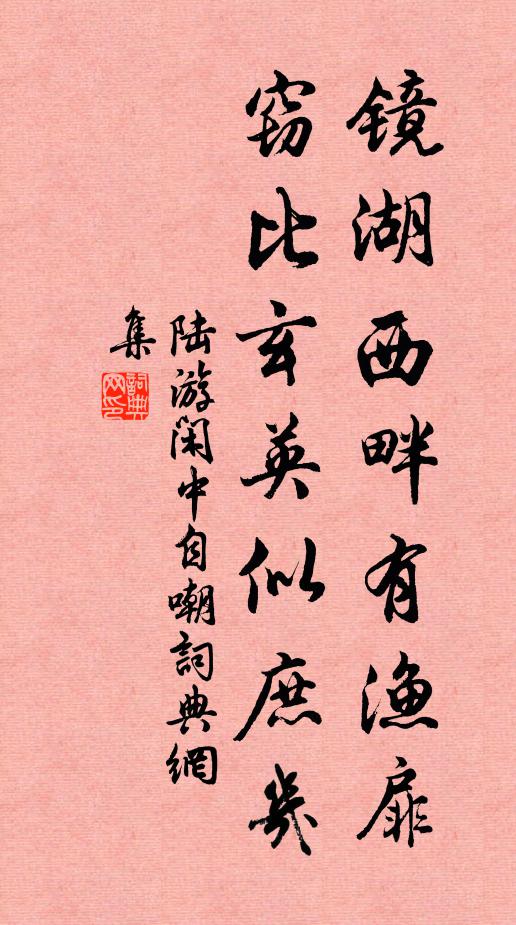 镜湖西畔有渔扉
窃比玄英似庶幾
陆游闲中自嘲詞典網
集
詞典
网印